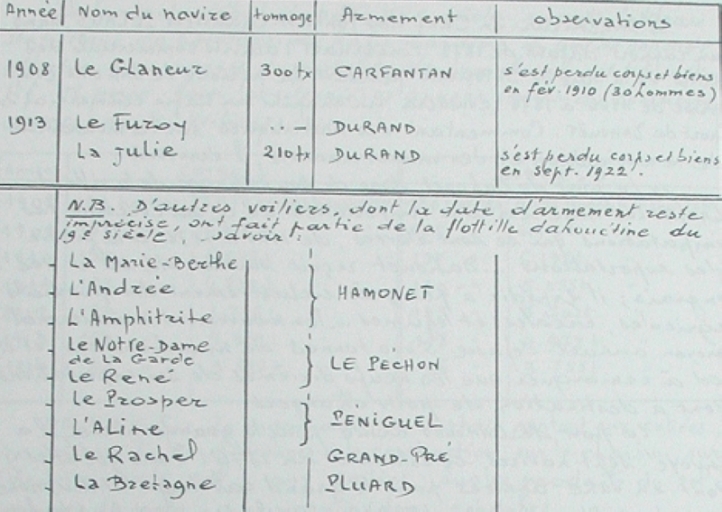 Année Nom du navire tonnage Armement observations
1908 Le Glaneur 300tx CARFANTAN s'est perdu corps et biens
en fev. 1910 (30 hommes)
1913 Le Furoy ..._ DURAND
La julie 210tx DURAND s'est perdu corps et biens
en sept. 1922.
N.B. D'autres voiliers, dont la date d'armement reste
imprécise, ont fait partie de la flottille dahouëtine du
19e siècle, savoir:
La Marie-Berthe
L'Andrée HAMONET
L'Amphitrite
Le Notre-Dame
de La Garde LE PECHON
Le René
Le Prosper
L'ALine PÉNIGUEL
Le Rachel GRAND-PRÉ
La Bretagne PLUARD